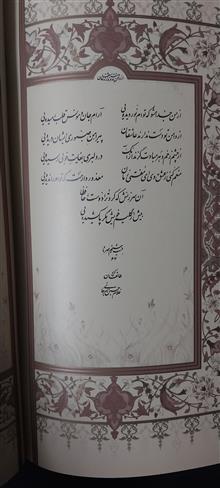 از من جدا مشو که توام نور دیده‌ای آرام جان و مونس قلب رمیده‌ای
از دامن تو دست ندارند عاشقان پیراهن صبوری ایشان دریده‌ای
از چشم زخم دهر مبادت گزند از آنک در دلبری به غایت خوبی رسیده‌ای
منعم کنی ز عشق وی ای مفتی زمان معذور دارمت که تو او را ندیده‌ای
آن سرزنش که کرد ترا دوست حافظا
بیش از گلیم خویش مگر پا کشیده‌ای